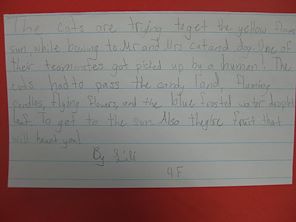 The cats are trying to get the yellow flaming
sun while bowing to Mr and Mrs cat and dog. One of
their teammates got picked up by a human! The
cats had to pass the candy land, flaming
candles, flying flowers, and the blue frosted water droplet
to get to the sun. Also the fruit that
will haunt you!
By Lili
4F